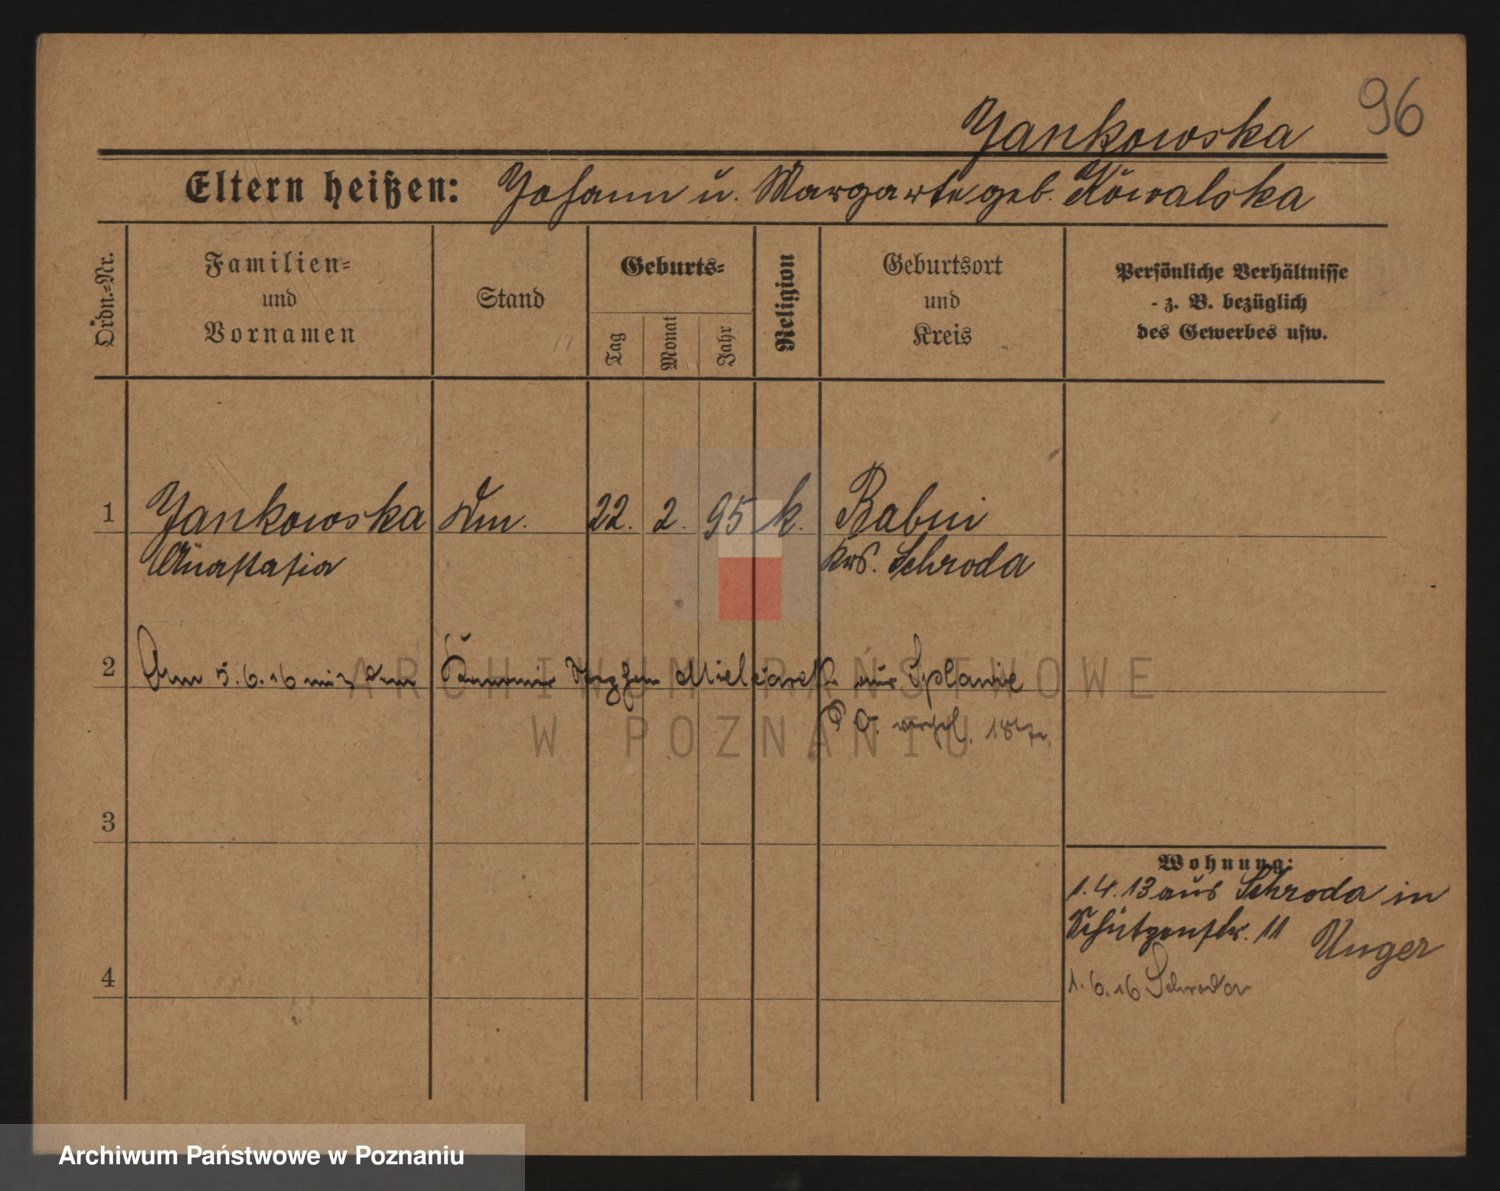 96
Jankowska
Eltern heißen: Johann u. Margarte geb. Kowalska
Ordn.-Nr.
Familien-
und
Vornamen
Stand
Geburts-
Tag
Monat
Jahr
Religion
Geburtsort
und
Kreis
Persönliche Verhältnisse
- z. B. bezüglich
des Gewerbes usw.
1 Jankowska 22. 2. 95 k. Babin
Anastasia Krs. Schroda
2 Am 5.6.16 mit dem Mielcarek aus
3
4
Wohnung:
1.4.13 aus Schroda in
Schützenstr. 11 Unger
1.6.16 Schroda
ARCHIWUM PAŃSTWOWE
W POZNANIU
Archiwum Państwowe w Poznaniu